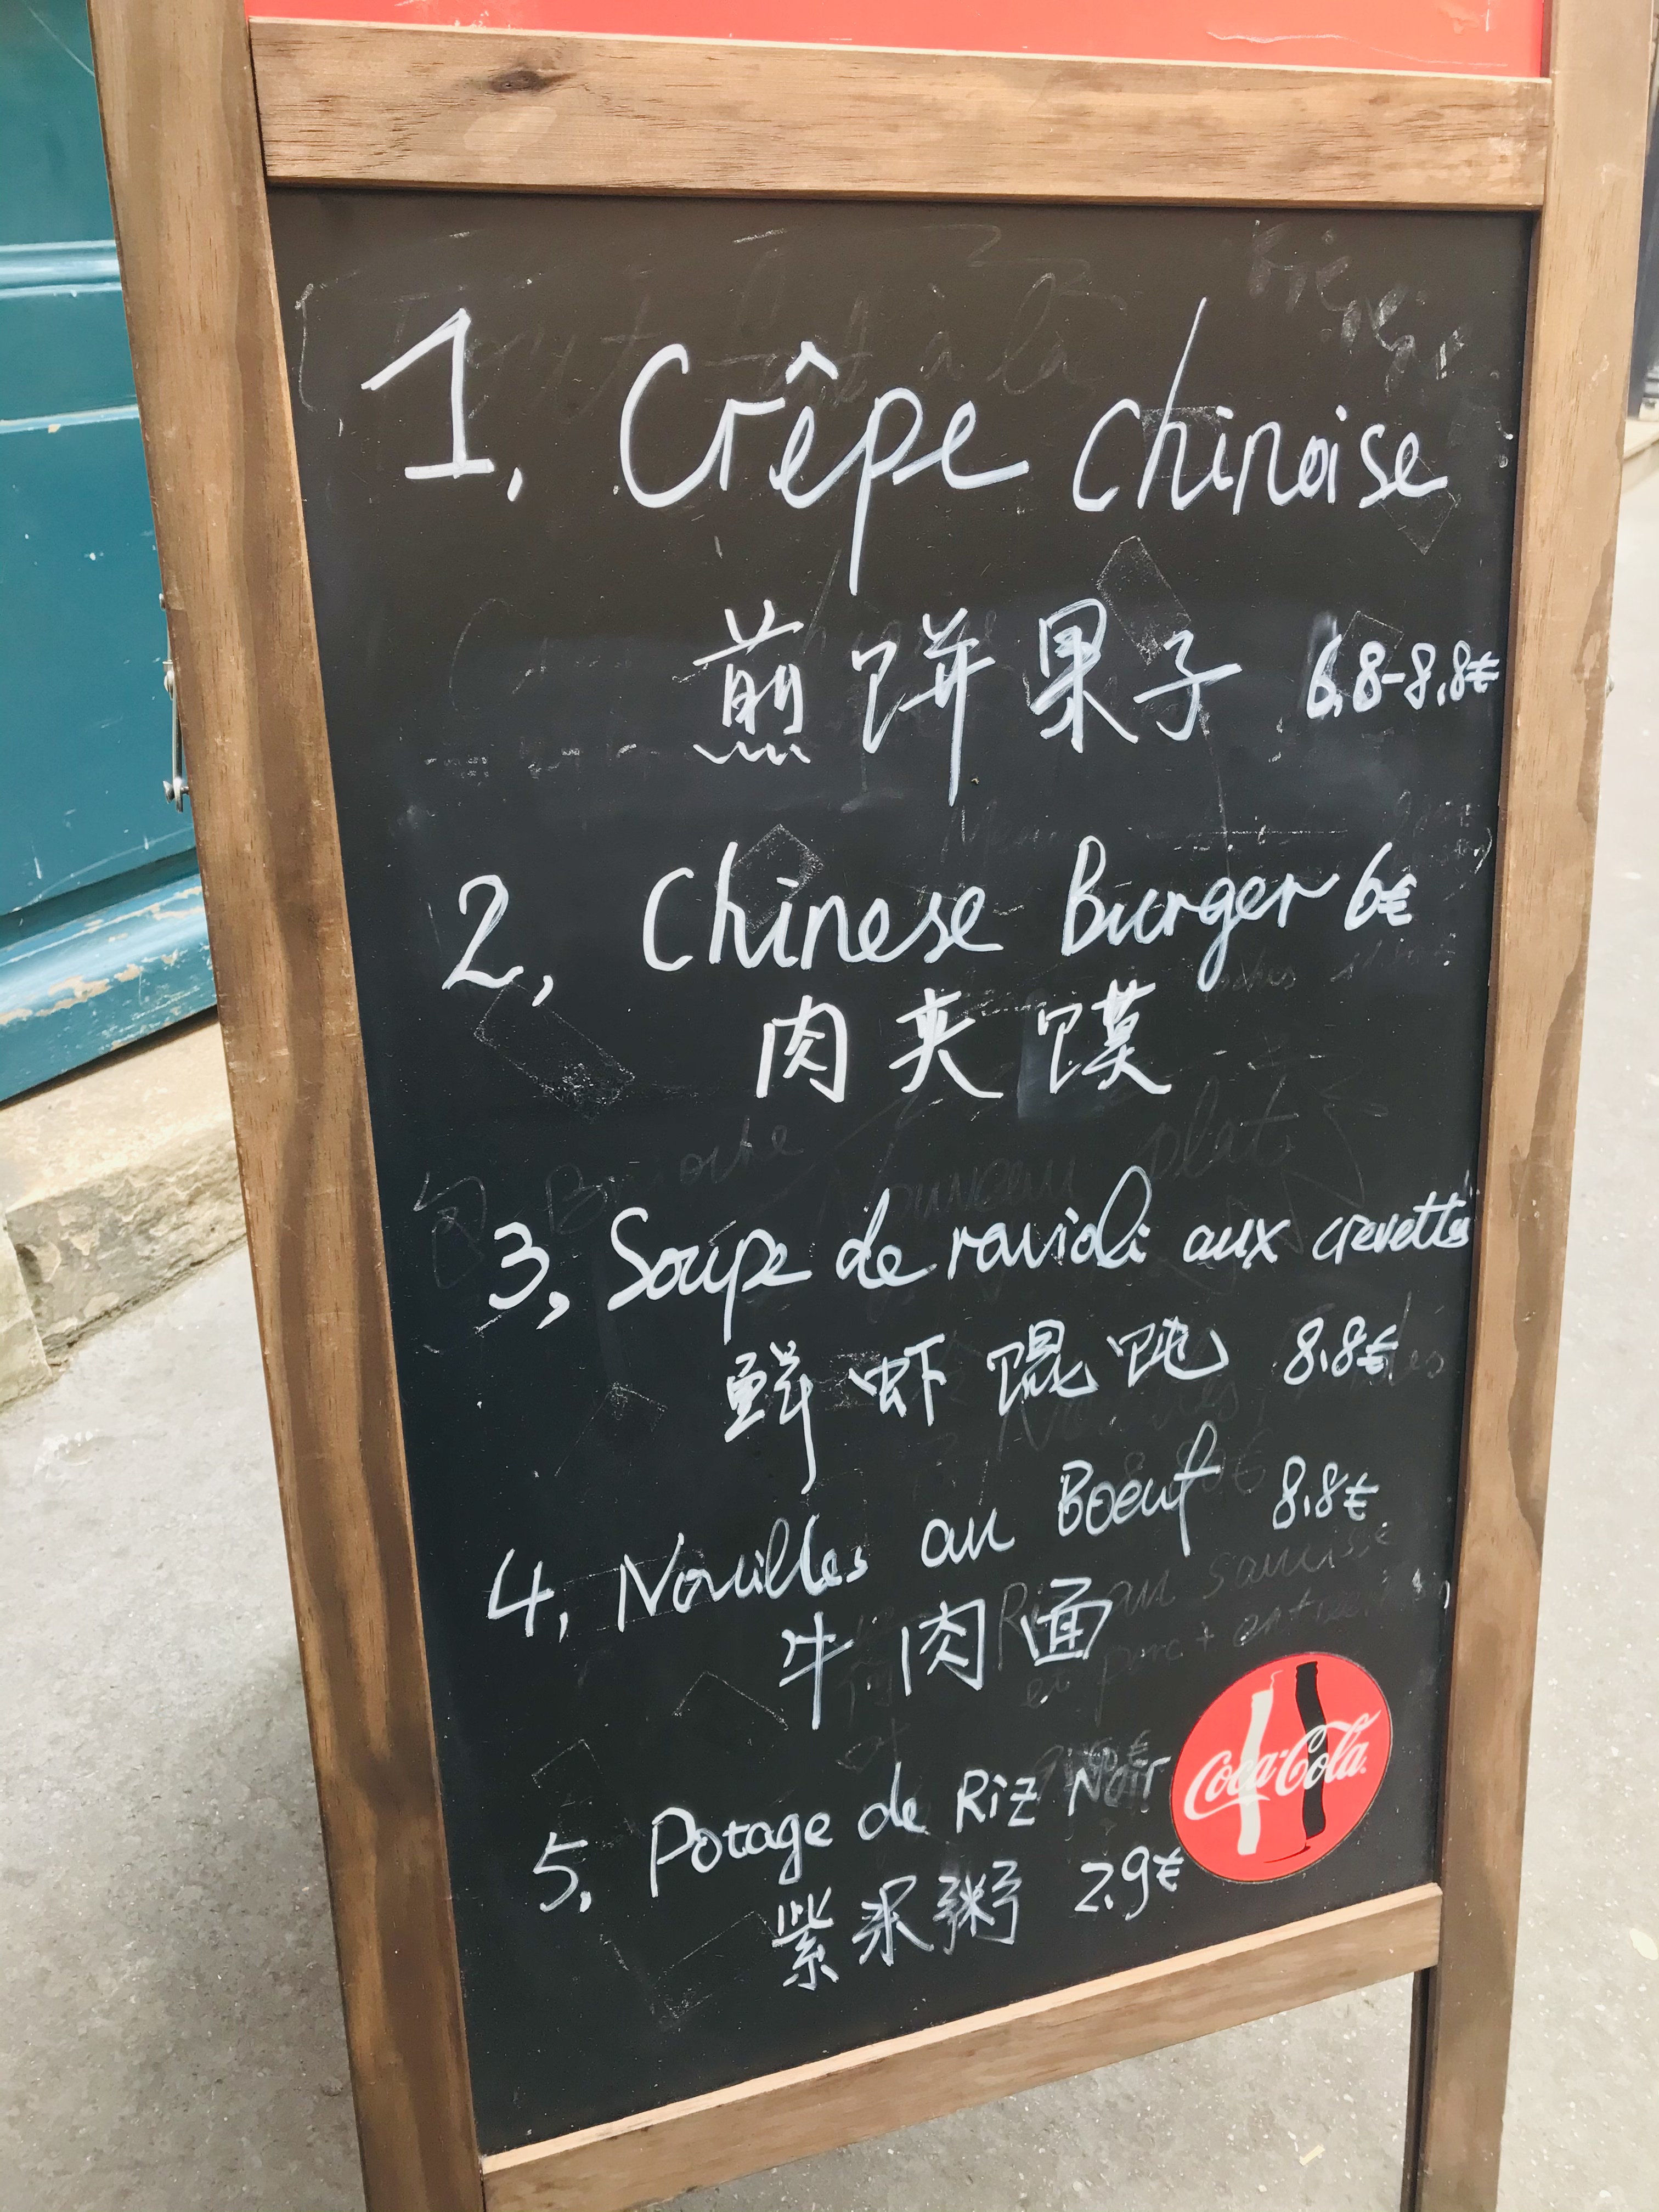 1. Crêpe chinoise
煎饼果子 6,8-8,8€
2, Chinese Burger 6€
肉夹馍
3, Soupe de ravioli aux crevettes
鲜虾馄饨 8,8€
4, Nouilles au Boeuf 8,8€
牛肉面
5, Potage de Riz Noir
紫米粥 2,9€
Coca-Cola